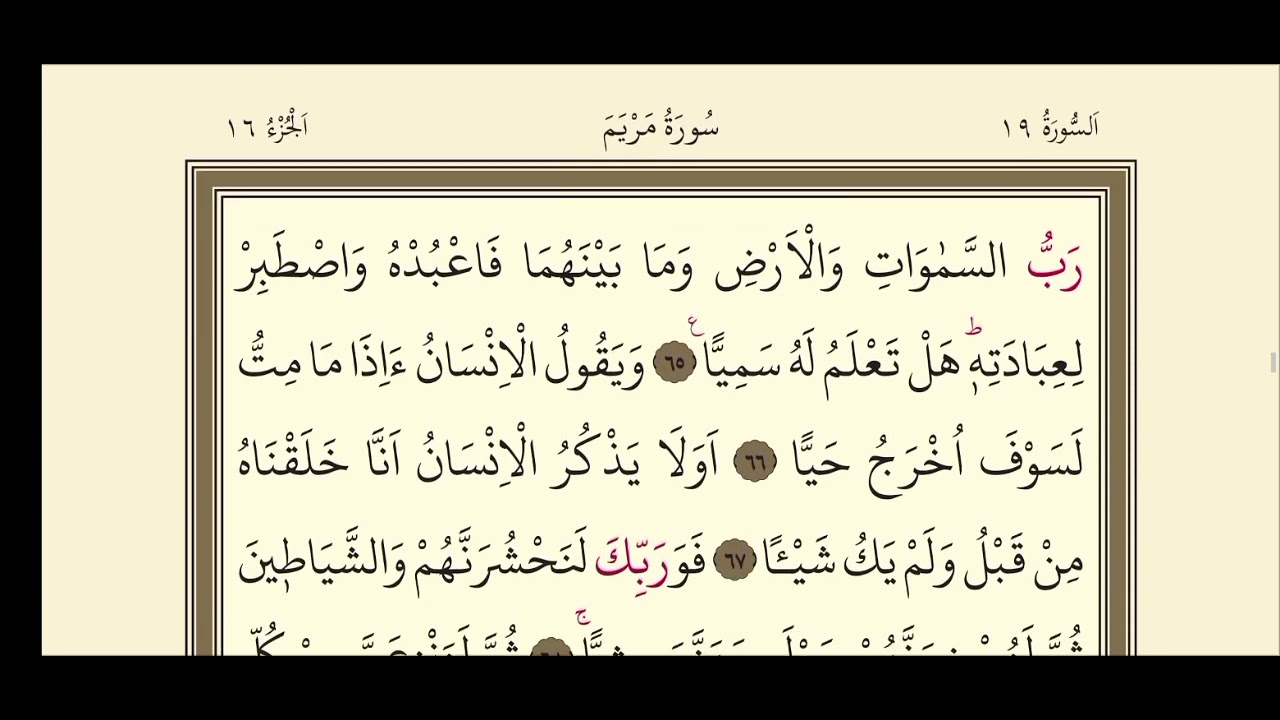 اَلسُّورَةُ ١٩ سُورَةُ مَرْيَمَ اَلْجُزْءُ ١٦
رَبُّ السَّمٰوَاتِ وَالْاَرْضِ وَمَا بَيْنَهُمَا فَاعْبُدْهُ وَاصْطَبِرْ
لِعِبَادَتِهٖ ط هَلْ تَعْلَمُ لَهُ سَمِيًّا ع ٦٥ وَيَقُولُ الْاِنْسَانُ ءَاِذَا مَا مِتُّ
لَسَوْفَ اُخْرَجُ حَيًّا ٦٦ اَوَلَا يَذْكُرُ الْاِنْسَانُ اَنَّا خَلَقْنَاهُ
مِنْ قَبْلُ وَلَمْ يَكُ شَيْـًٔا ٦٧ فَوَرَبِّكَ لَنَحْشُرَنَّهُمْ وَالشَّيَاطٖينَ